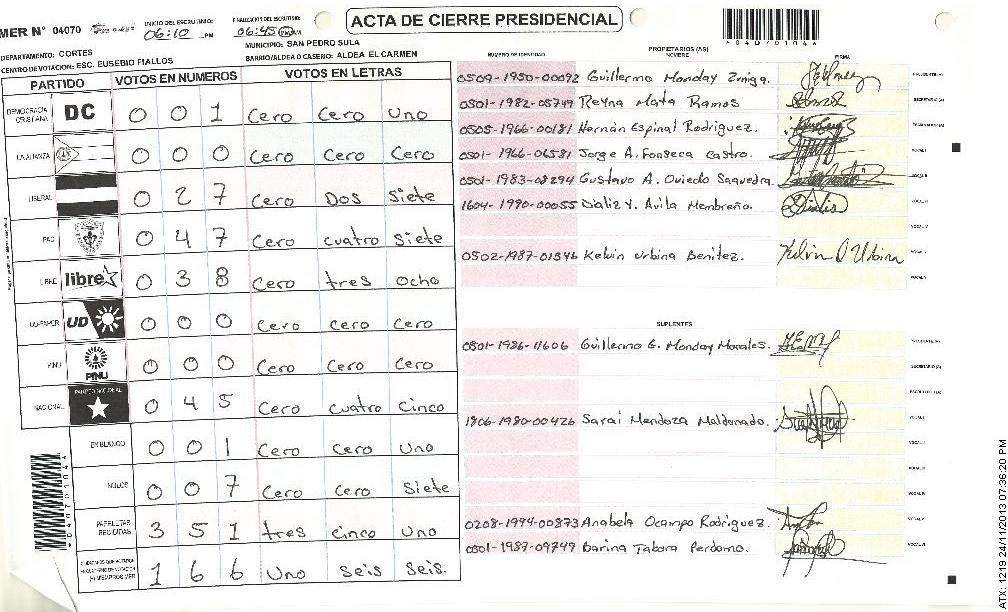 ACTA DE CIERRE PRESIDENCIAL
MER N° 04070
INICIO DEL ESCRUTINIO:
06:10 PM
FINALIZACION DEL ESCRUTINIO:
06:45 PM
*04070104*
DEPARTAMENTO: CORTES
MUNICIPIO: SAN PEDRO SULA
CENTRO DE VOTACION: ESC. EUSEBIO FIALLOS
BARRIO/ALDEA O CASERIO: ALDEA EL CARMEN
PARTIDO VOTOS EN NUMEROS VOTOS EN LETRAS
DEMOCRACIA CRISTIANA DC 0 0 1 Cero Cero Uno
LA ALIANZA 0 0 0 Cero Cero Cero
LIBERAL 0 2 7 Cero Dos Siete
PAC 0 4 7 Cero cuatro Siete
LIBRE libre 0 3 8 Cero tres Ocho
UD-FAPER UD 0 0 0 Cero Cero Cero
PINU PINU 0 0 0 Cero Cero Cero
NACIONAL PARTIDO NACIONAL 0 4 5 Cero Cuatro Cinco
EN BLANCO 0 0 1 Cero Cero Uno
NULOS 0 0 7 Cero Cero Siete
PAPELETAS RECIBIDAS 3 5 1 tres Cinco Uno
1 6 6 Uno Seis Seis.
*04070104*
NUMERO DE IDENTIDAD
PROPIETARIOS (AS)
NOMBRE
FIRMA
0509-1950-00092 Guillermo Monday Zuniga. PRESIDENTE (A)
0501-1982-05749 Reyna Mata Ramos SECRETARIO (A)
0505-1966-00181 Hernán Espinal Rodriguez. ESCRUTADOR (A)
0501-1966-06581 Jorge A. Fonseca Castro. VOCAL I
0501-1983-08294 Gustavo A. Oviedo Saavedra. VOCAL II
1604-1990-00055 Dializ Y. Avila Membreño. VOCAL III
VOCAL IV
0502-1987-01346 Kelvin Urbina Benitez. Kelvin O Urbina VOCAL V
VOCAL VI
SUPLENTES
0801-1986-11606 Guillermo G. Monday Morales. PRESIDENTE (A)
SECRETARIO (A)
ESCRUTADOR (A)
1806-1980-00426 Sarai Mendoza Maldonado. VOCAL I
VOCAL II
VOCAL III
VOCAL IV
0208-1994-00873 Anabela Ocampo Rodriguez. VOCAL V
0501-1987-09749 Darina Tabora Perdomo. VOCAL VI
ATX: 1219 24/11/2013 07:36:20 PM